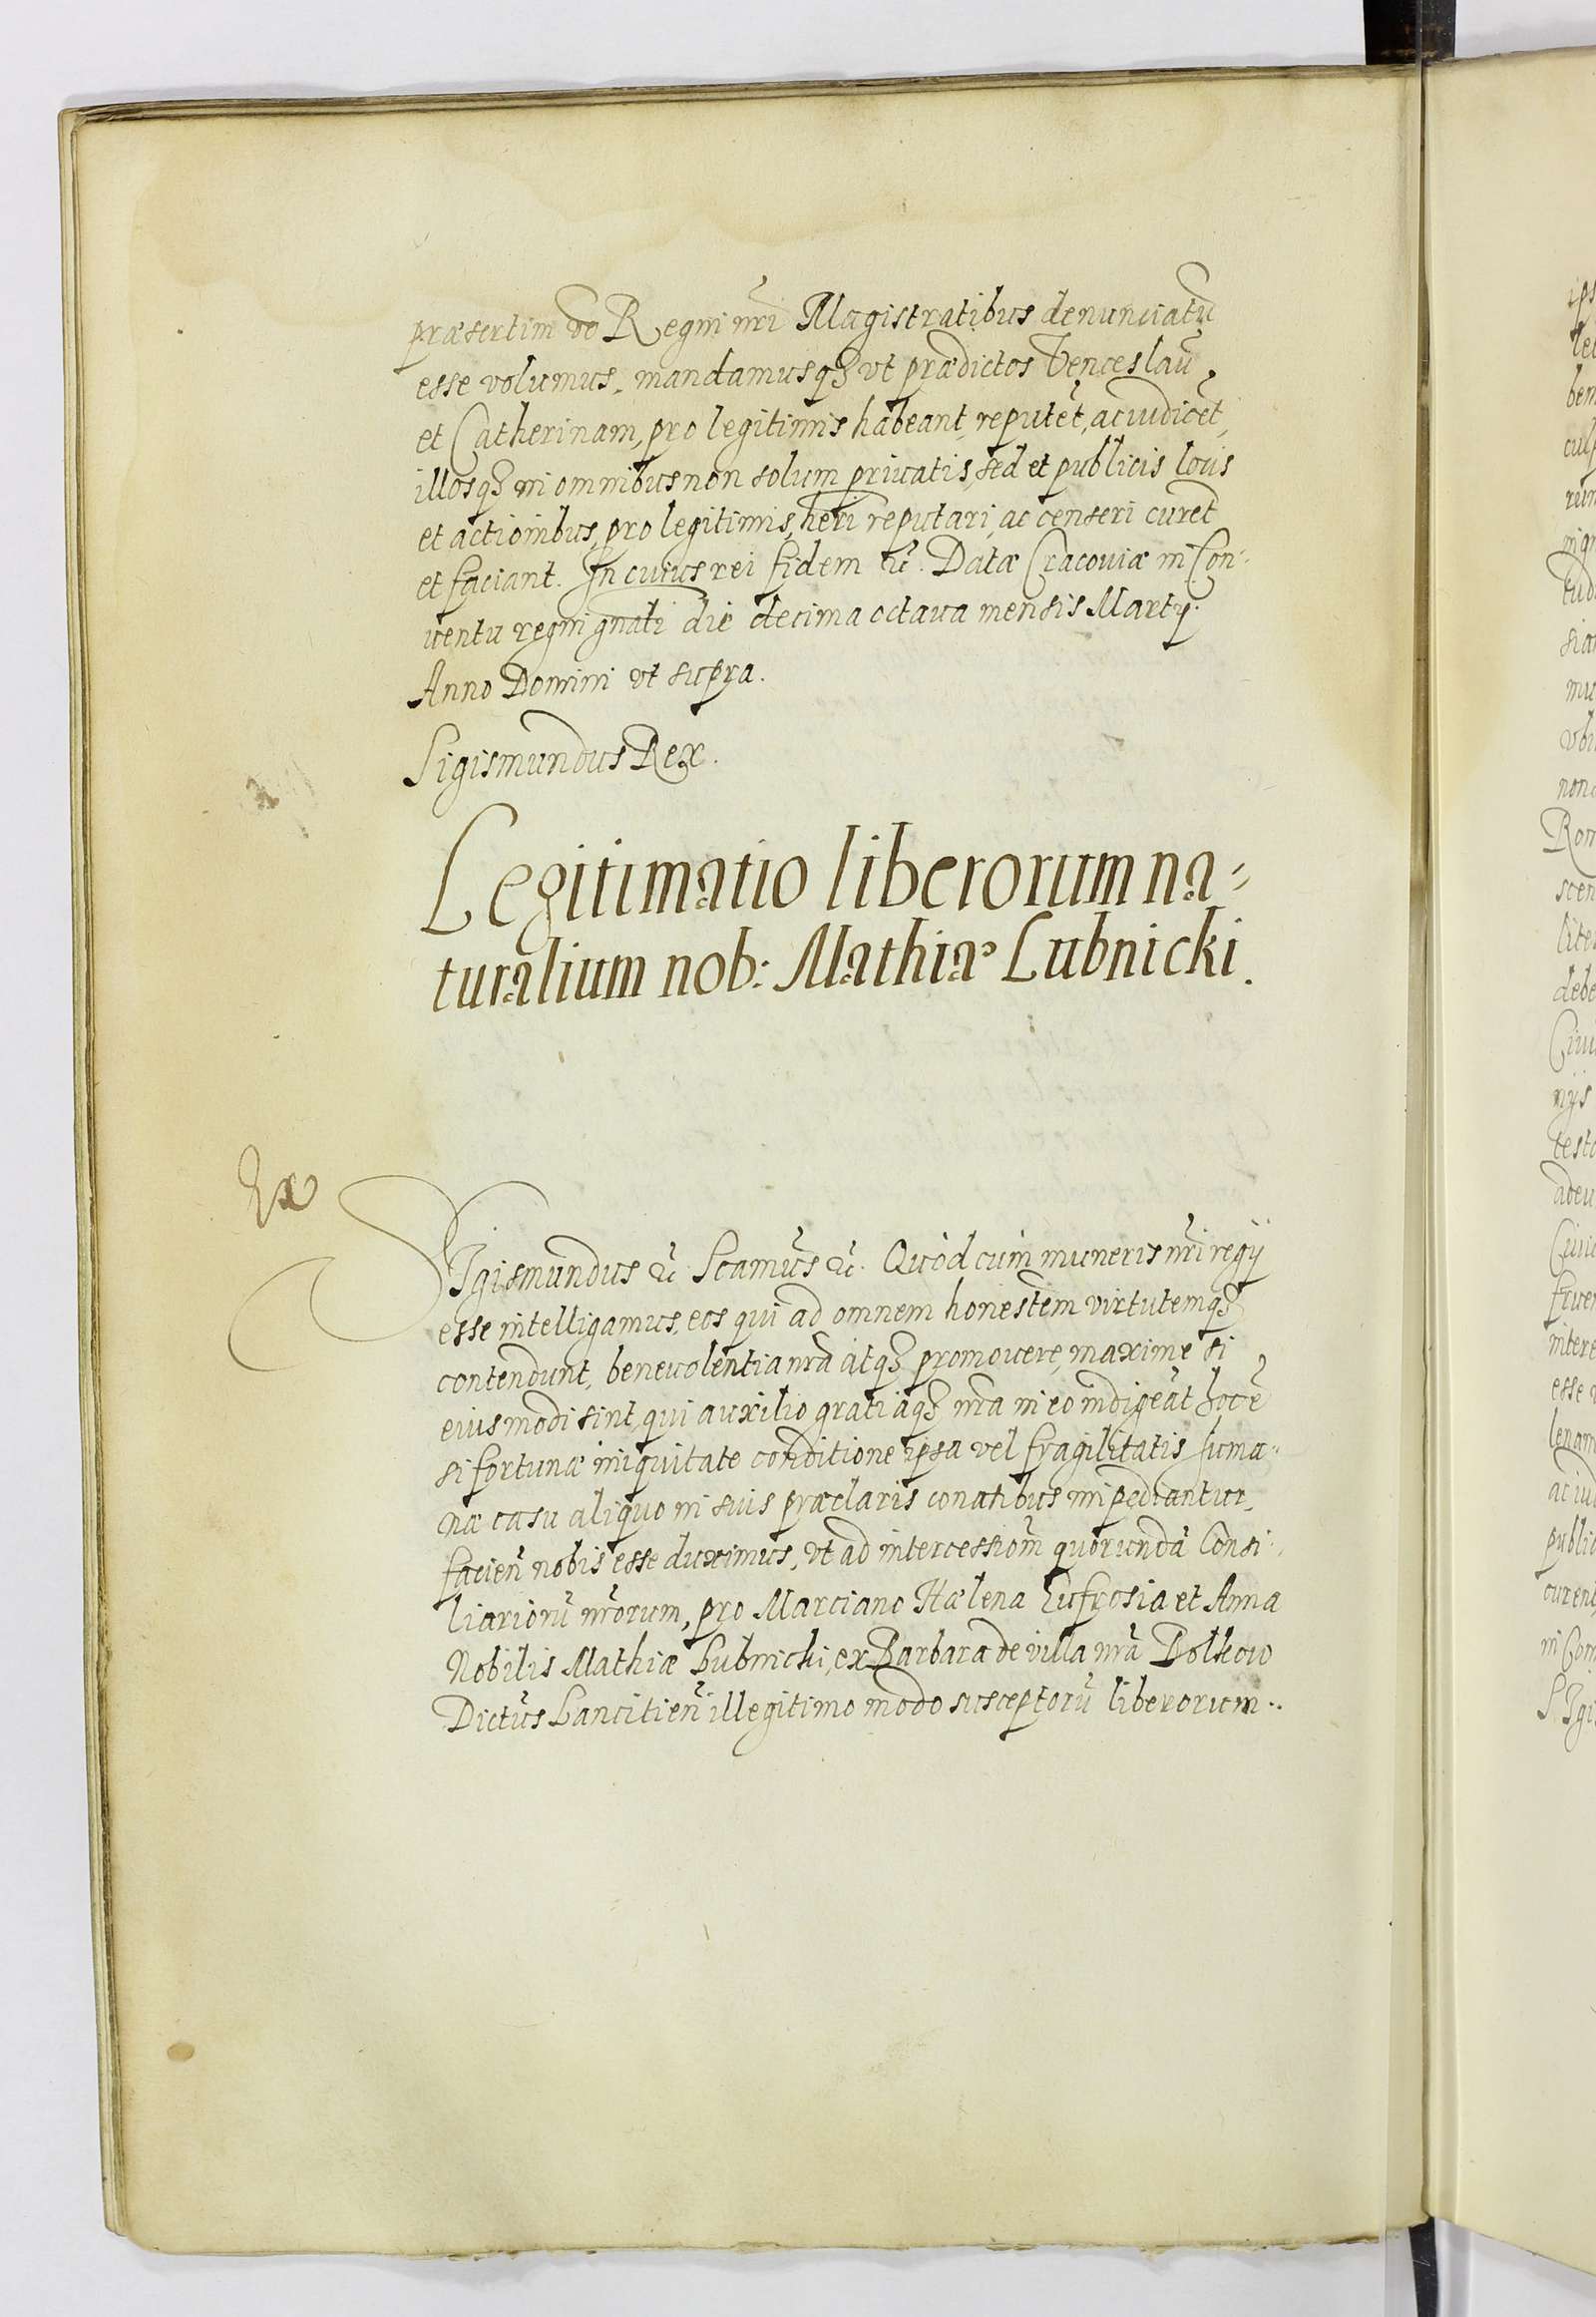 præsertim vō Regni nr̄i Magistratibus denunciatū
esse volumus, mandamusqꝫ vt prædictos Venceslaū
et Catherinam, pro legitimis habeant, reputēt, ac iudicēt,
illosqꝫ in omnibus non solum priuatis, sed et publicis locis
et actionibus, pro legitimis, heri reputari, ac censeri curēt
et faciant. In cuius rei fidem ꝛc̄. Datæ Cracouiæ in Con-
uentu regni gn̄ali die decima octaua mensis Martÿ.
Anno Domini vt supra.
Sigismundus Rex.
Legitimatio liberorum na-
turalium nob: Mathiæ Lubnicki.
SIgismundus ꝛc̄ Scamūs ꝛc̄. Quòd cum muneris nr̄i regÿ
esse intelligamus, eos qui ad omnem honestēm virtutemqꝫ
contendunt, beneuolentia nr̄a atqꝫ promouere, maxime si
eiusmodi sint, qui auxilio gratiaqꝫ nr̄a in eo indigeāt hoc ē
si fortunæ iniquitate conditione ipsa vel fragilitatis huma-
næ casu aliquo in suis præclaris conatibus impediantur,
facien̄ nobis esse duximus, vt ad intercessiom̄ quorundā Consi-
liariorū nr̄orum, pro Marciano Hælena Eufrosia et Anna
Nobilis Mathiæ Lubnicki, ex Barbara de villa nr̄a Bolkow
Dictūs Lancitien̄ illegitimo modo susceptorū liberorum..